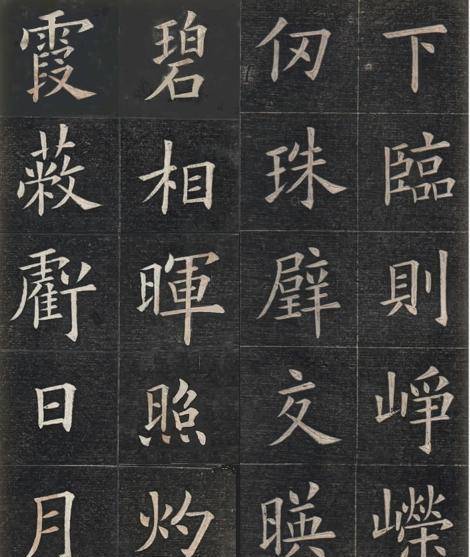 下臨則崢嶸
仞珠璧交暎
碧相暉照灼
霞蔽虧日月